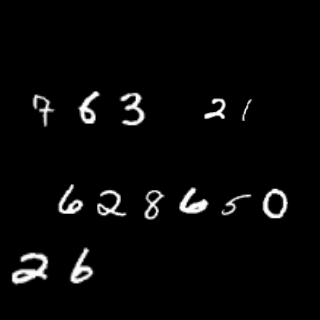 7 6 3 2 1
6 2 8 6 5 0
2 6